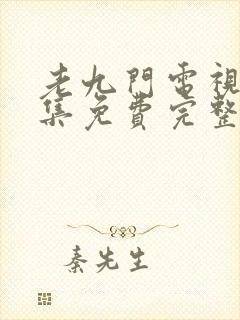 老九門電視
集免費完整
秦先生